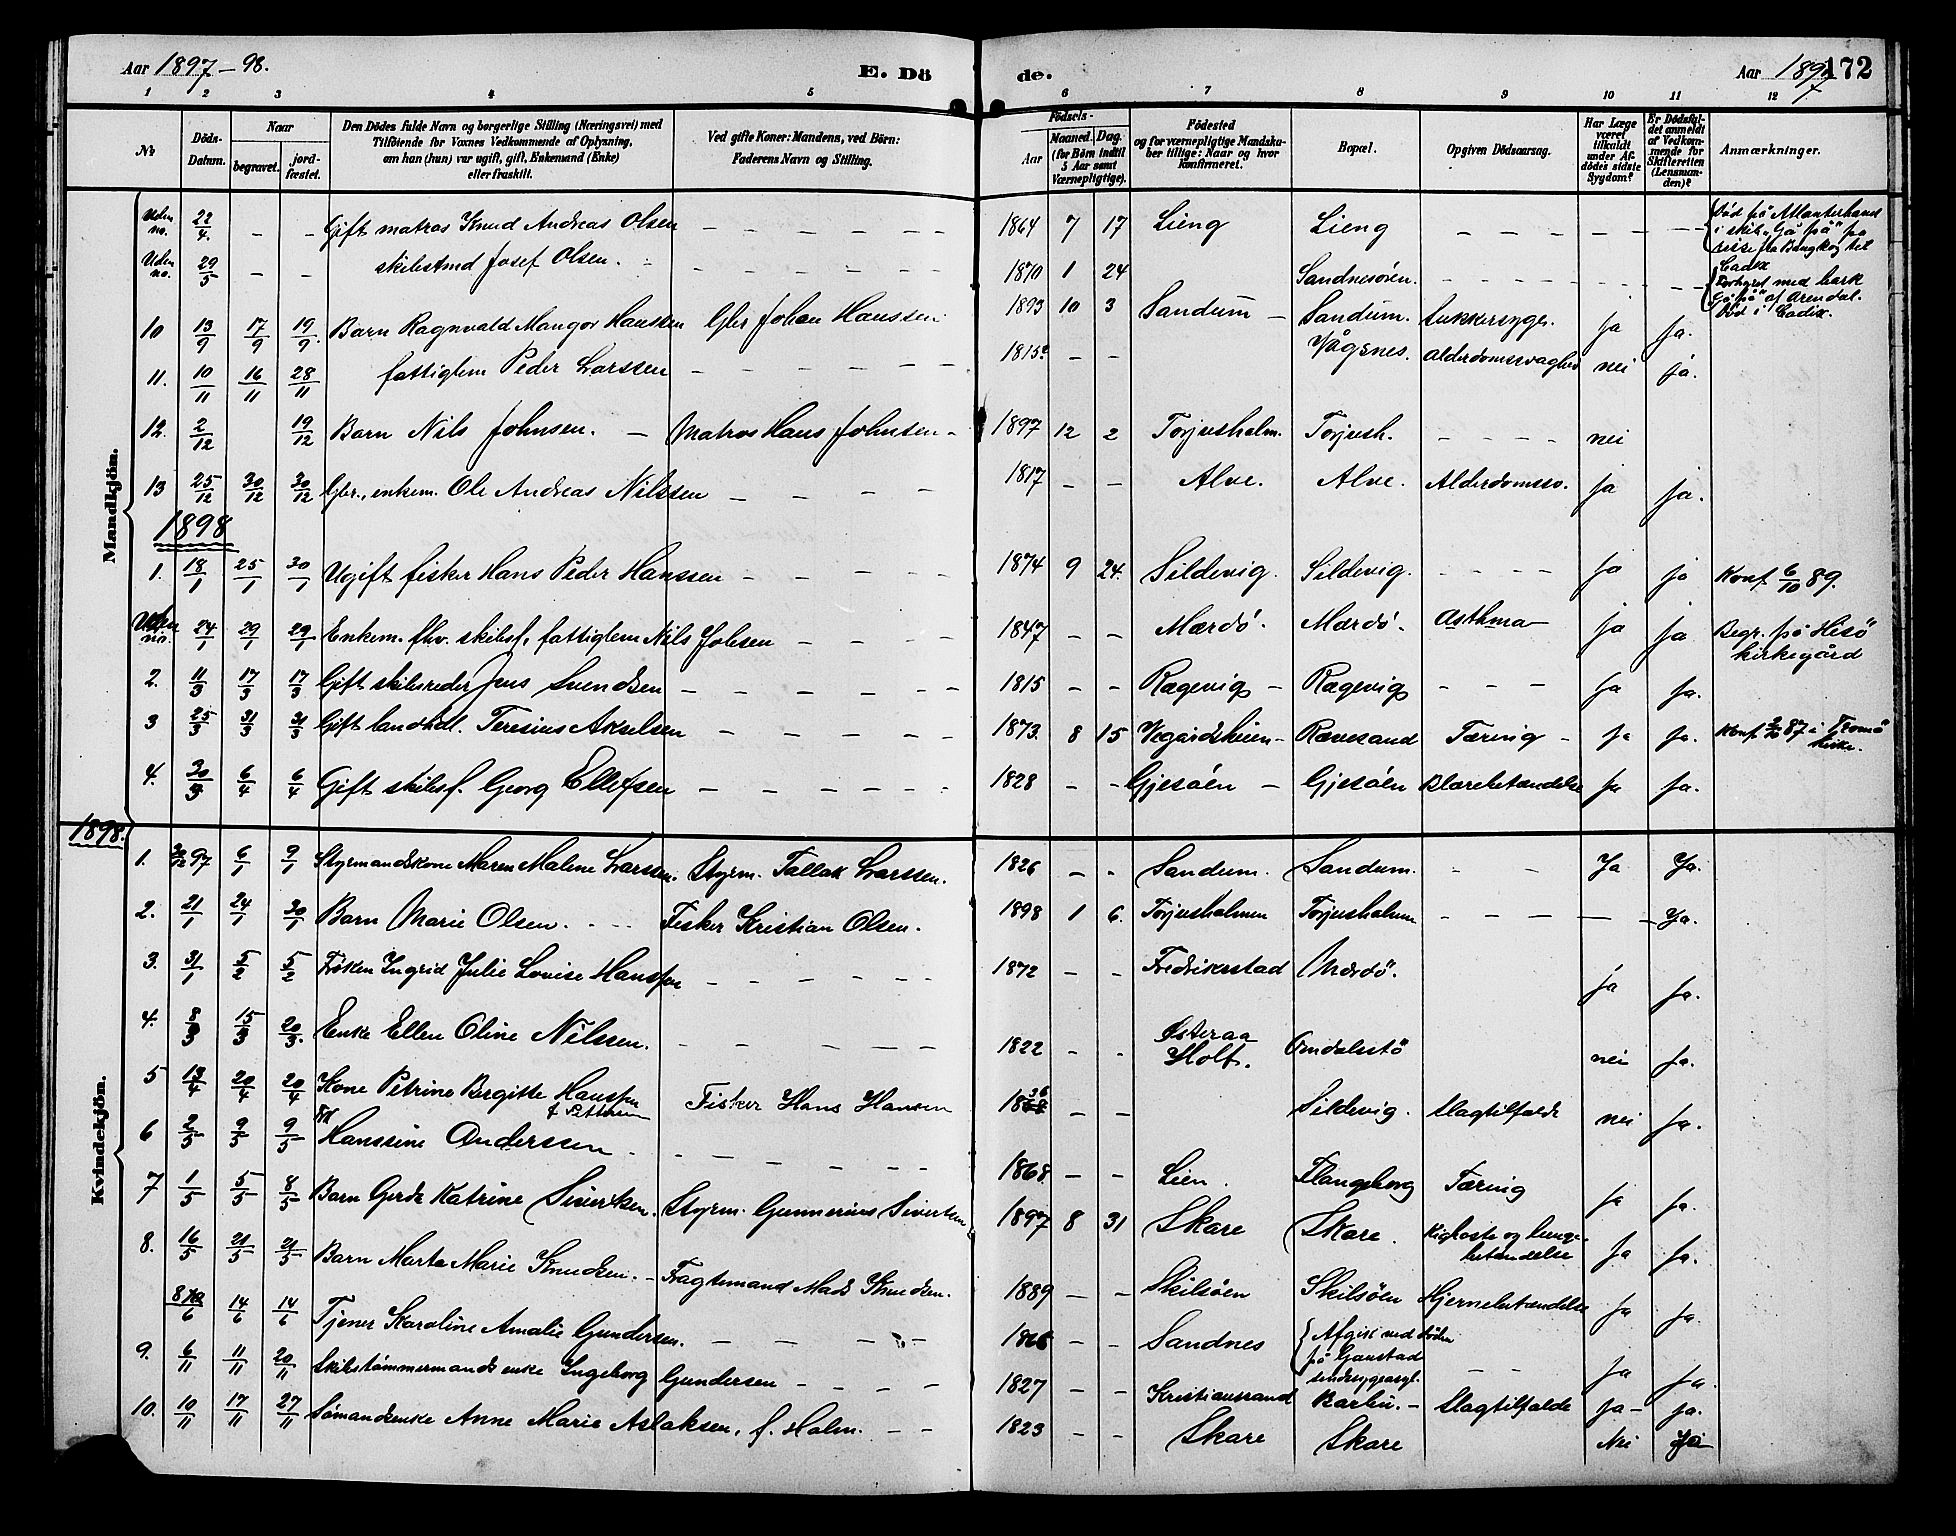 Aar 1897-98. E. Dö de. Aar 189 172
1 2 3 4 5 6 7 8 9 10 11 12
№ Döds-Datum. Naar begravet. jord-fæstet. Den Dödes fulde Navn og borgerlige Stilling (Næringsvei) med Tilföiende for Voxnes Vedkommende af Oplysning, om han (hun) var ugift, gift, Enkemand (Enke) eller fraskilt. Ved gifte Koner: Mandens, ved Börn: Faderens Navn og Stilling. Födsels- Aar Maaned. Dag. (for Börn indtil 5 Aar samt Værnepligtige). Födested og for værnepligtige Mandskaber tillige: Naar og hvor konfirmeret. Bopæl. Opgiven Dödsaarsag. Har Læge været tilkaldt under Afdödes sidste Sygdom? Er Dödsfaldet anmeldt af Vedkommende for Skifteretten (Lensmanden)? Anmærkninger.
Mandkjön.
Uden no. 22/4. - - Gift matros Knud Andreas Olsen - - - - - 1864 7 17 Lieng Lieng - - - - - - Död på Atlanterhavet i skib "Gå på" på reise fra Bangkog til Cadix
Uden no. 29/5 - - skibstmd Josef Olsen. - - - - - 1870 1 24 Sandnesöen. - - - - - - Forhyret med bark "Gå på" af Arendal. Död i Cadix.
10 13/9 17/9 19/9. Barn Ragnvald Mangor Hanssen Gbr Johan Hanssen 1893 10 3 Sandum - Sandum. Sukkersyge. ja ja.
11. 10/11 16/11 28/11 fattiglem Peder Larssen - - - - - 1815? - - Vågsnes. Alderdomssvaghed nei ja.
12. 2/12 19/12 Barn Nils Johnsen. - Matros Hans Johnsen - 1897 12 2 Torjusholm. Torjush. - - - - nei
13 25/12 30/12 30/12 Gbr., enkem. Ole Andreas Nilssen - - - - 1817 - - Alve. Alve. Alderdomssv. ja ja.
1898
1. 18/1 25/1 30/1 Ugift fisker Hans Peder Hanssen - - - - - 1874 9 24. Sildevig. Sildevig. - - - - ja ja Konf. 6/10 89.
Uden no. 24/1 29/1 29/1 Enkem. fhv. skibsf. fattiglem Nils Jobsen - - - 1847 - - Mærdö. Mærdö. Asthma ja ja Begr. på Hisö kirkegård
2. 11/3 17/3 17/3 Gift skibsreder Jens Svendsen - - - - - - 1815 - - Rægevig - Rægevig - - - ja ja.
3 25/3 31/3 31/3 Gift landhdl. Teresius Akselsen - - - - - 1873. 8 15 Vegårdsheien - Rævesand Tæring - ja ja. Konf. 2/10 87 i Tromö kirke.
4. 30/3 6/4 6/4 Gift skibsf. Georg Ellefsen - - - - - 1828 - - Gjesöen - Gjesöen Blærebetændelse ja ja.
1898.
Kvindekjön.
1. 30/12 97 6/1 9/1 Styrmandskone Maren Malene Larssen. Styrm. Tallak Larssen. 1826 - - Sandum. Sandum. - - Ja Ja.
2. 21/1 24/1 30/1 Barn Marie Olsen. - - - Fisker Kristian Olsen. 1898 1 6. Torjusholmen Torjusholmen - - - - - Ja.
3. 31/1 5/2 5/2 Fröken Ingrid Julie Lovise Hanssen - - - - - 1872 - - Fredriksstad Mærdö. ja ja.
4. 8/3 15/3 20/3. Enke Ellen Oline Nilssen. - - - - - 1822 - - Österaa Holt. Omdalsstö nei ja.
5 13/4 20/4 20/4 Kone Petrine Bergitte Hanssen Fisker Hans Hansen 1836 - - Sildevig. Slagtilfælde nei ja.
6 2/5 9/5 9/5 Hanssine Anderssen. - - - - - - 1868 - - Lien. Flangeborg Tæring ja ja.
7 1/5 5/5 8/5 Barn Gerda Katrine Sivertsen. Styrm. Gunnerius Sivertsen 1897 8 31 Skare Skare. Kighoste og lungebetændelse ja ja.
8. 16/5 21/5 21/5 Barn Marta Marie Knudsen. - Fragtemand Mads Knudsen. 1889 - - Skilsöen Skilsöen Hjernebetændelse ja ja.
8/6 14/6 14/6 Tjener Karoline Amalie Gundersen. - - - - - - - Sandnes Afgik ved döden på Gaustad sindssygeasyl. - - ja ja.
9. 6/11 11/11 20/11 Skibstömmermands enke Ingeborg Gundersen - - - - 1827 - - Kristianssand Barbu. - Slagtilfælde ja - ja.
10. 10/11 17/11 27/11 Sömandsenke Anne Marie Aslaksen, f. Holm. - - 1823 - - Skare Skare Nei Ja